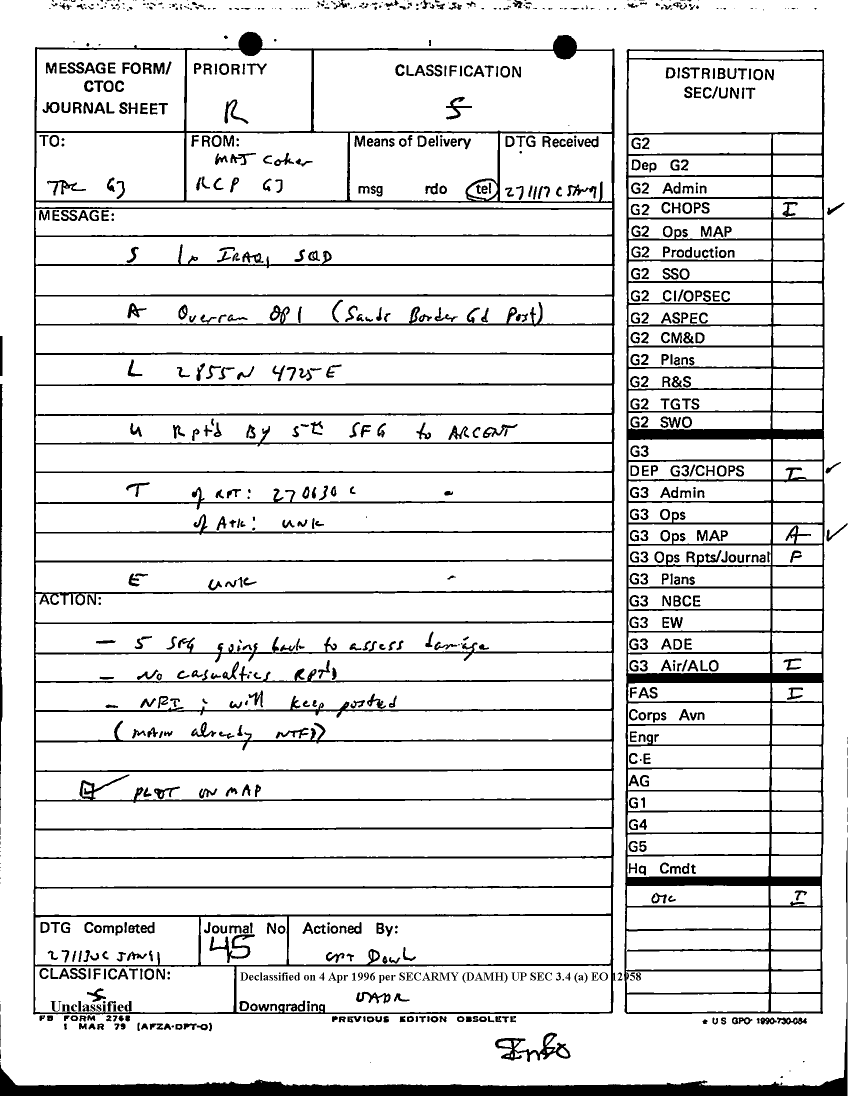 MESSAGE FORM/
CTOC
JOURNAL SHEET
PRIORITY
R
CLASSIFICATION
S
DISTRIBUTION
SEC/UNIT
TO:
G3
FROM:
MAJ Coker
RCP G3
Means of Delivery
msg rdo tel
DTG Received
271117C JAN91
MESSAGE:
S IRAQI SQD
A Overran OP1 (Saudi Border Gd Post)
L 2855N 4725E
U Rpt'd By 5th SFG to ARCENT
T of RPT: 270630C
of Atk: UNK
E UNK
ACTION:
— 5 SFG going back to assess damage
— No casualties RPT'D
— NFI; will keep posted
(MAIN already NTFD)
PLOT ON MAP
DTG Completed
271130C JAN91
Journal No
45
Actioned By:
CPT
CLASSIFICATION:
S
Unclassified
Declassified on 4 Apr 1996 per SECARMY (DAMH) UP SEC 3.4 (a) EO 12958
Downgrading OADR
FB FORM 2768
1 MAR 79 (AFZA-DPT-O)
PREVIOUS EDITION OBSOLETE
Info
G2
Dep G2
G2 Admin
G2 CHOPS I
G2 Ops MAP
G2 Production
G2 SSO
G2 CI/OPSEC
G2 ASPEC
G2 CM&D
G2 Plans
G2 R&S
G2 TGTS
G2 SWO
G3
DEP G3/CHOPS I
G3 Admin
G3 Ops
G3 Ops MAP A
G3 Ops Rpts/Journal F
G3 Plans
G3 NBCE
G3 EW
G3 ADE
G3 Air/ALO I
FAS I
Corps Avn
Engr
C-E
AG
G1
G4
G5
Hq Cmdt
I
U S GPO: 1990-730-084